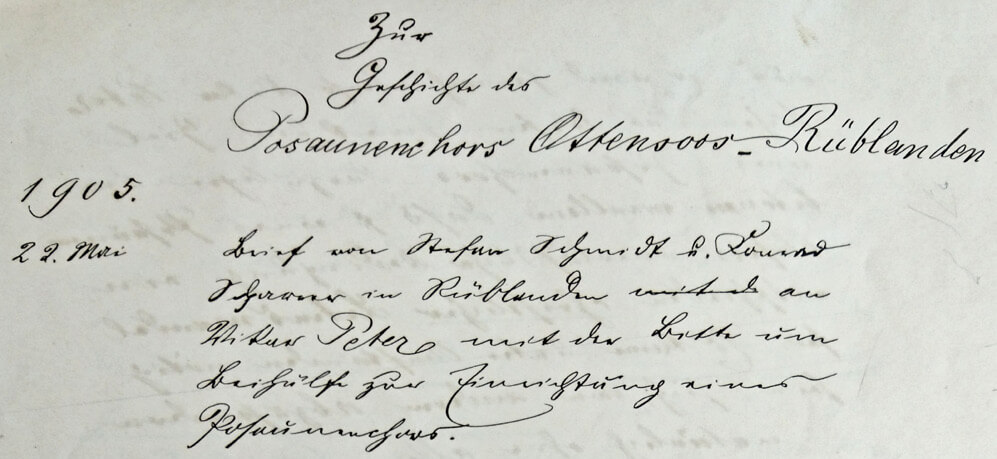 Zur
Geschichte des
Posaunenchors Ottensoos-Rüblanden
1905.
22. Mai Brief von Stefan Schmidt u. Konrad
Scharrer in Rüblanden an
Vikar Peter mit der Bitte um
Beihülfe zur Einrichtung eines
Posaunenchors.